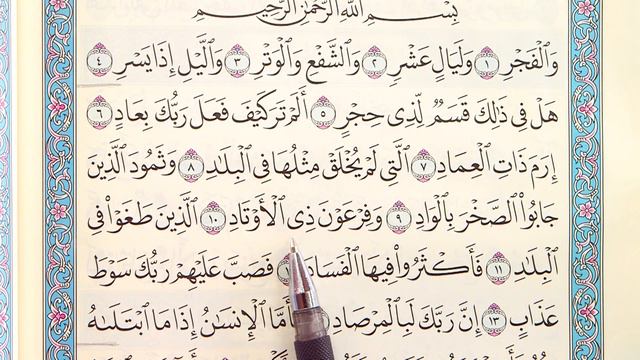 بِسْمِ ٱللَّهِ ٱلرَّحْمَٰنِ ٱلرَّحِيمِ
وَٱلْفَجْرِ ١ وَلَيَالٍ عَشْرٍ ٢ وَٱلشَّفْعِ وَٱلْوَتْرِ ٣ وَٱلَّيْلِ إِذَا يَسْرِ ٤
هَلْ فِى ذَٰلِكَ قَسَمٌ لِّذِى حِجْرٍ ٥ أَلَمْ تَرَ كَيْفَ فَعَلَ رَبُّكَ بِعَادٍ ٦
إِرَمَ ذَاتِ ٱلْعِمَادِ ٧ ٱلَّتِى لَمْ يُخْلَقْ مِثْلُهَا فِى ٱلْبِلَٰدِ ٨ وَثَمُودَ ٱلَّذِينَ
جَابُوا۟ ٱلصَّخْرَ بِٱلْوَادِ ٩ وَفِرْعَوْنَ ذِى ٱلْأَوْتَادِ ١٠ ٱلَّذِينَ طَغَوْا۟ فِى
ٱلْبِلَٰدِ ١١ فَأَكْثَرُوا۟ فِيهَا ٱلْفَسَادَ فَصَبَّ عَلَيْهِمْ رَبُّكَ سَوْطَ
عَذَابٍ ١٣ إِنَّ رَبَّكَ لَبِٱلْمِرْصَادِ فَأَمَّا ٱلْإِنسَٰنُ إِذَا مَا ٱبْتَلَىٰهُ